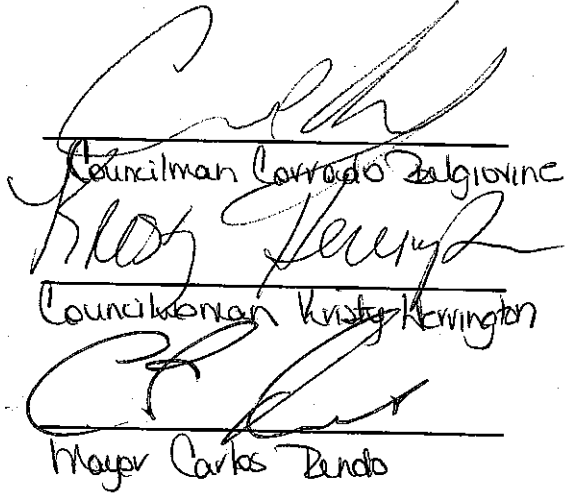 Councilman Corrado Belgiovine
Kristy Herrington
Councilwoman Kristy Herrington
Mayor Carlos Rendo